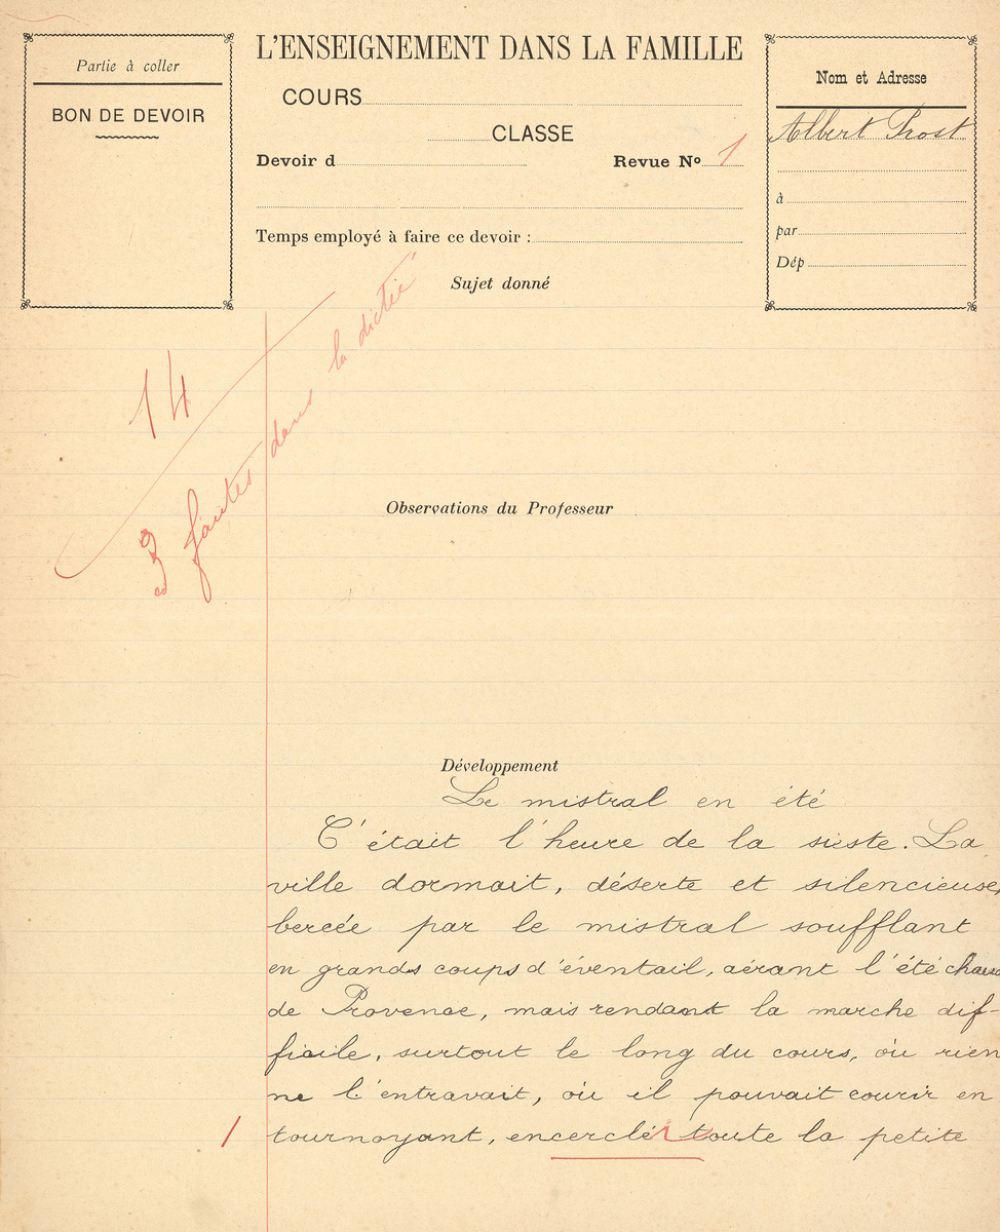 Partie à coller
BON DE DEVOIR
L'ENSEIGNEMENT DANS LA FAMILLE
COURS
CLASSE
Devoir d
Revue Nº 1
Temps employé à faire ce devoir :
Nom et Adresse
Albert Prost
à
par
Dép
Sujet donné
14
3 fautes dans la dictée
Observations du Professeur
Développement
Le mistral en été
C'était l'heure de la sieste. La
ville dormait, déserte et silencieuse,
bercée par le mistral soufflant
en grands coups d'éventail, aérant l'été chaud
de Provence, mais rendant la marche dif-
ficile, surtout le long du cours, où rien
ne l'entravait, où il pouvait courir en
1 tournoyant, encerclé toute la petite